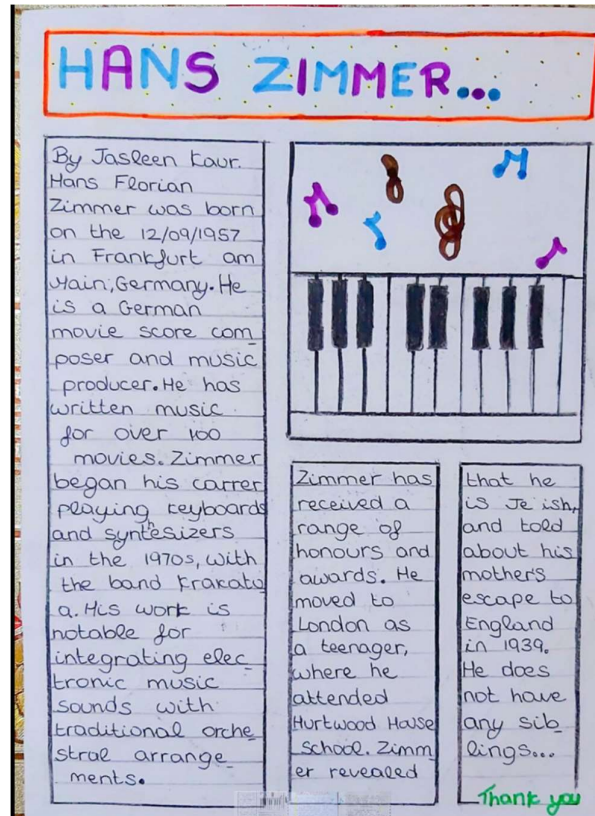 HANS ZIMMER...
By Jasleen Kaur.
Hans Florian
Zimmer was born
on the 12/09/1957
in Frankfurt am
Main, Germany. He
is a German
movie score com_
poser and music
producer. He has
written music
for over 100
movies. Zimmer
began his carrer
playing keyboards
and synthesizers
in the 1970s, with
the band Krakato_
a. His work is
notable for
integrating elec_
tronic music
sounds with
traditional orche_
stral arrange_
ments.
Zimmer has
received a
range of
honours and
awards. He
moved to
London as
a teenager,
where he
attended
Hurtwood House
school. Zimm_
er revealed
that he
is Je ish,
and told
about his
mothers
escape to
England
in 1939.
He does
not have
any sib_
lings...
Thank you